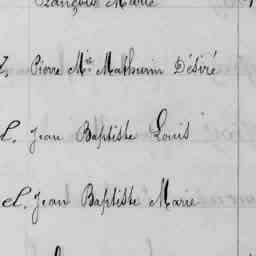 François Marie
Pierre Mie Mathurin Désiré
L. Jean Baptiste Louis
el. Jean Baptiste Marie